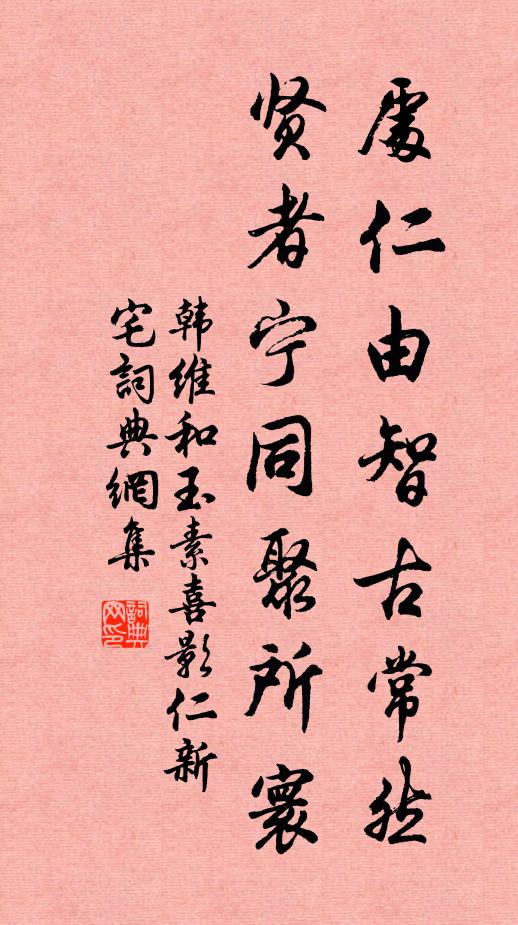 處仁由智古常然
贤者宁同聚所寰
韩维和玉素喜影仁新
宅詞典網集
詞典
网印